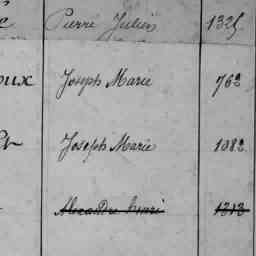 Pierre Julien 1325
oux Joseph Marie 762
Joseph Marie 1082
Alexandre henri 1313